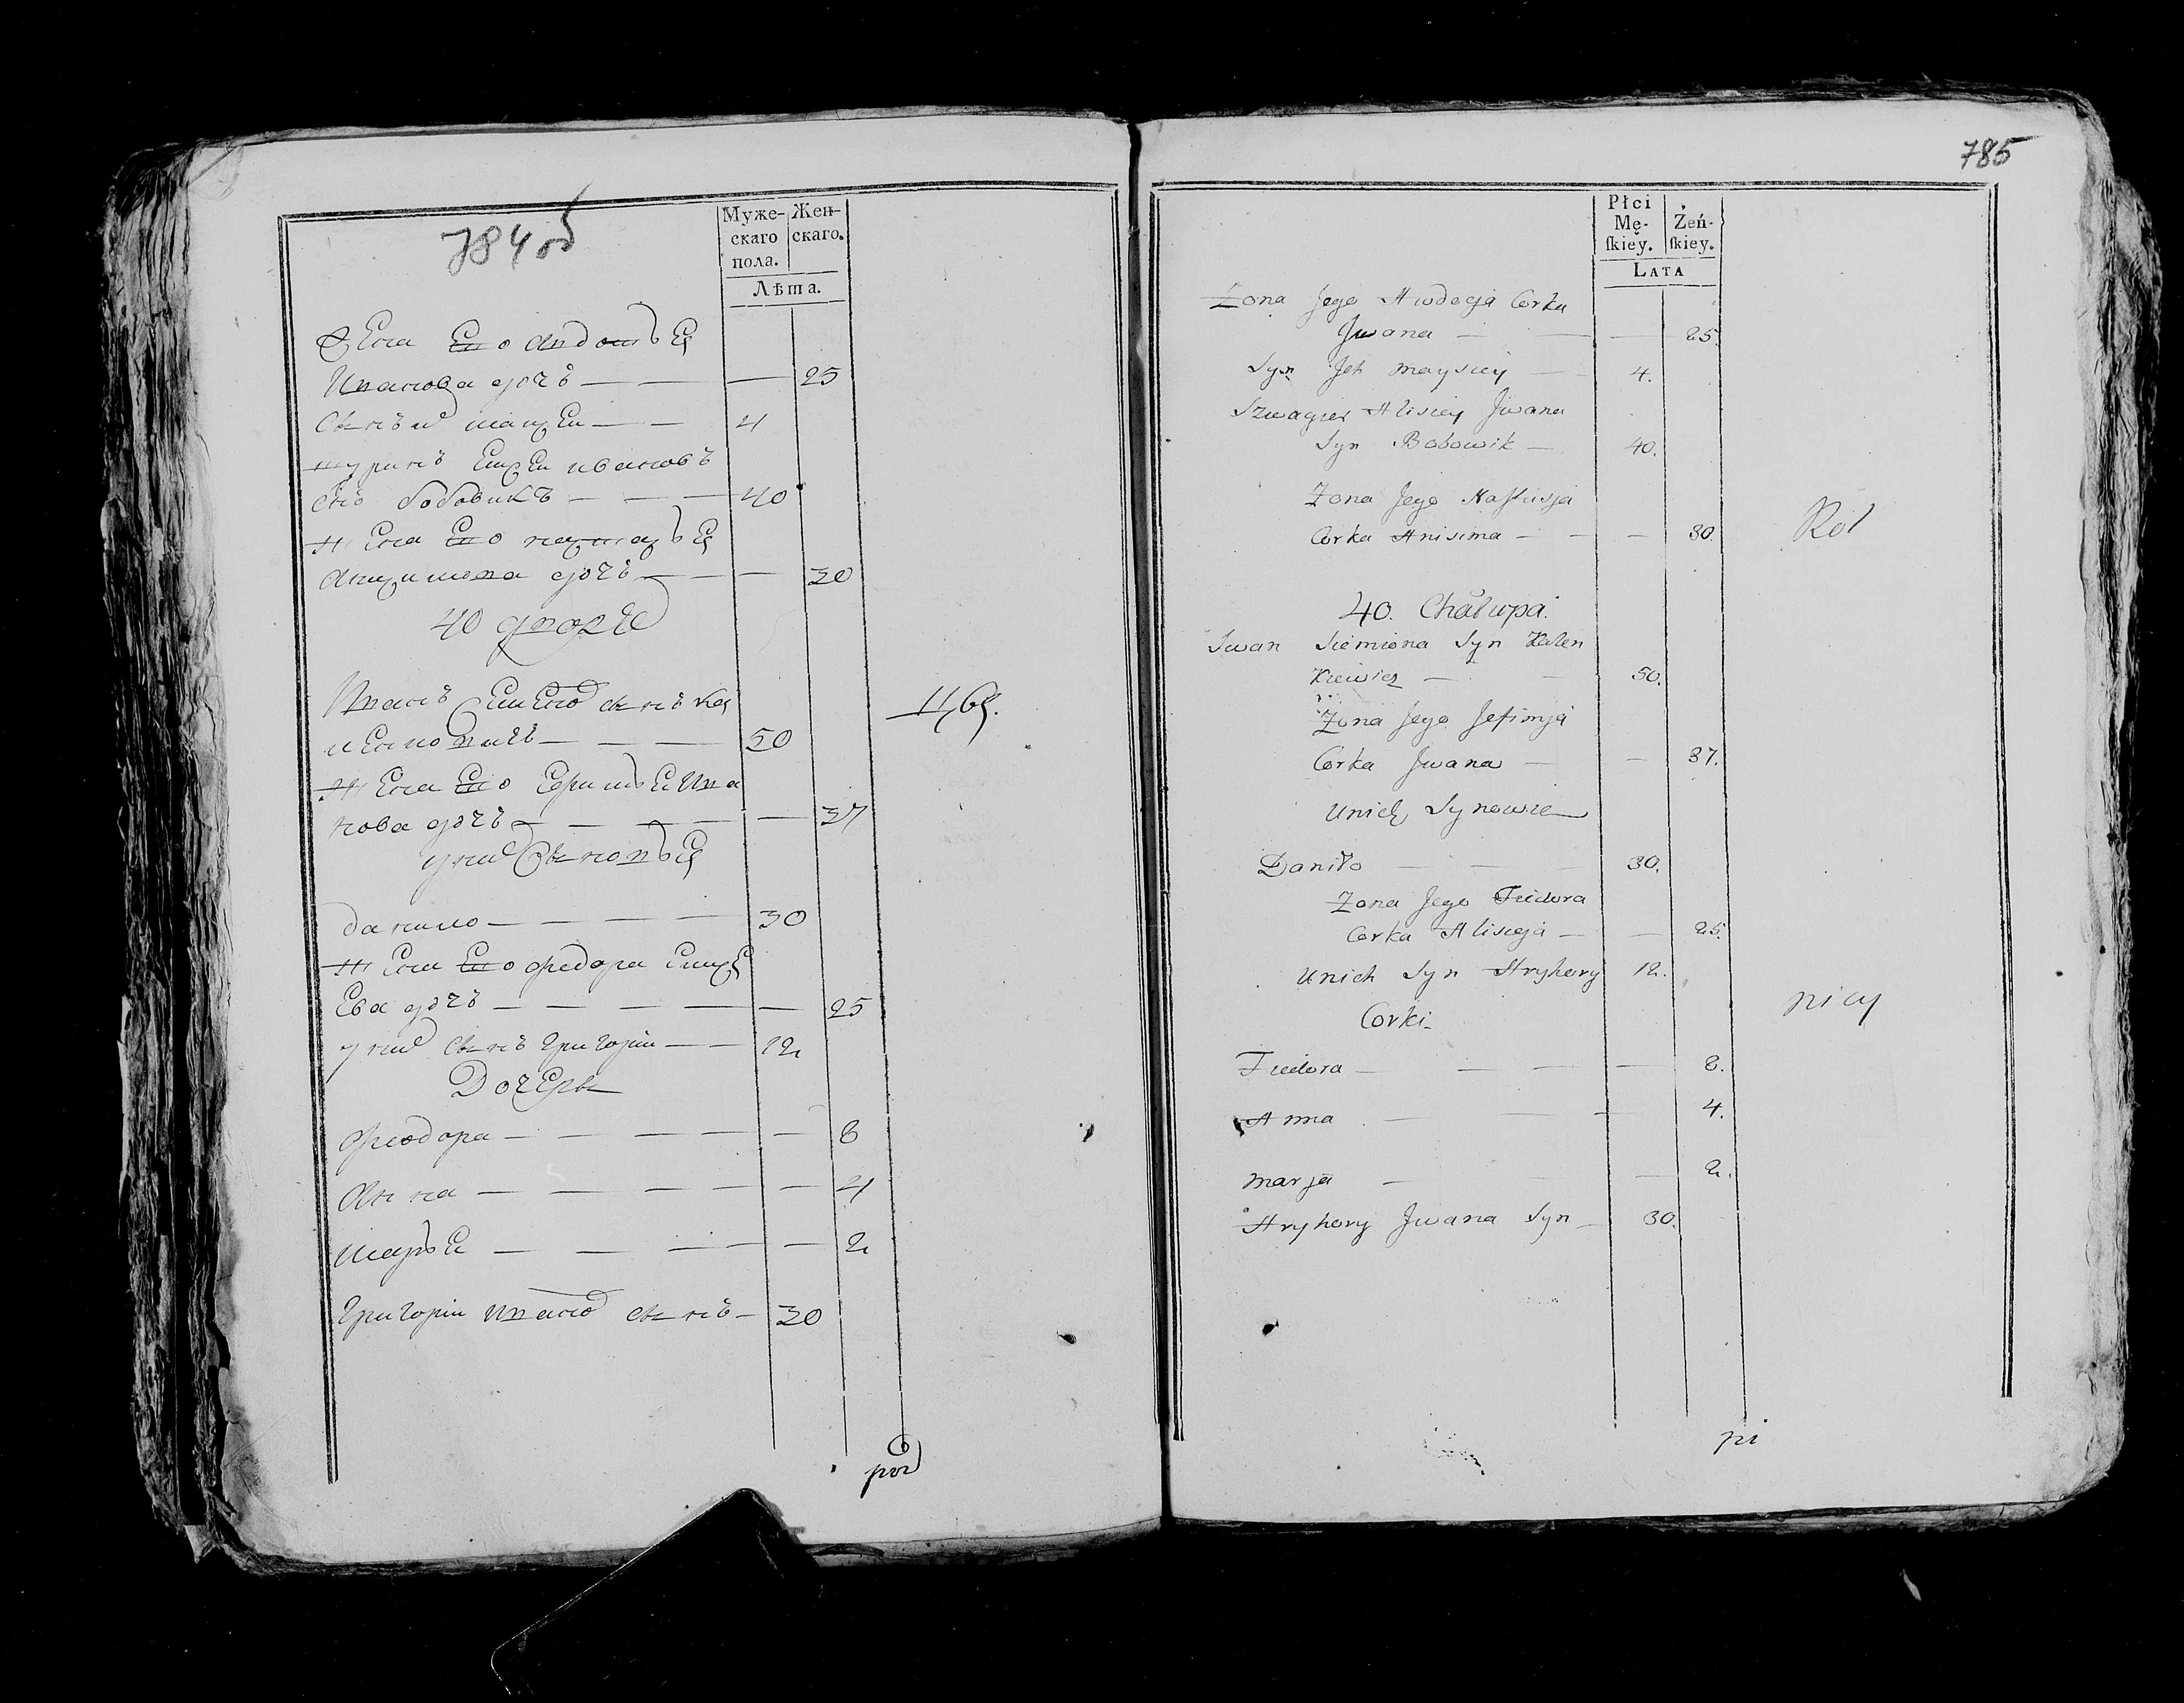 784 об
Муже-
скаго
пола.
Жен-
скаго.
Лѣта.
Жена Его Авдотья
Иванова дочь — — — 25
Сынъ их Мацей — — 4
шуринъ Елисей ивановъ
сынъ бобовикъ — — — 40
Жена Его настасья
Анисимова дочь — — — 30
40 дворъ
Иванъ Семенов сынъ Ка
ленковичь — — — 50
Жена Его Ефимья Ива
нова дочь — — — — 37
у них Сыновья
данило — — — — 30
Жена Его федора Елисе
Ева дочь — — — — — 25
у них сынъ григорій — — 12
Дочери
федора — — — — — 8
Анна — — — — — 4
Марья — — — — — 2
григорій иванов сынъ — 30
785
Płci
Mę-
ſkiey.
Żeń-
ſkiey.
LATA
Zona Jego Awdocja Corka
Jwana — — — 25.
Syn Jch Maysiey — 4.
Szwagier Alisiey Jwana
Syn Bobowik — 40.
Zona Jego Nastusja
Corka Anisima — — — 30.
Rol
40. Chałupa.
Jwan Siemiona Syn Kalen
kiewicz — — 50.
Zona Jego Jefimja
Corka Jwana — — 37.
Unich Synowie
Daniło — — — 30.
Zona Jego Fiedora
Corka Alisieja — — 25.
Unich Syn Hryhory 12.
nicy
Corki
Fiedora — — — — 8.
Anna — — — 4.
Marja — — 2.
Hryhory Jwana Syn — 30.
pi